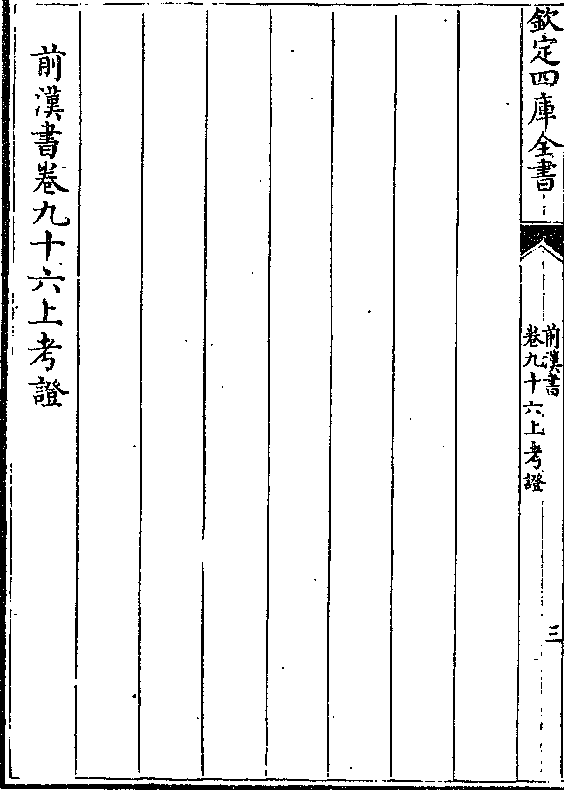 欽定四庫全書
前漢書
卷九十六上考證
三
前漢書卷九十六上考證